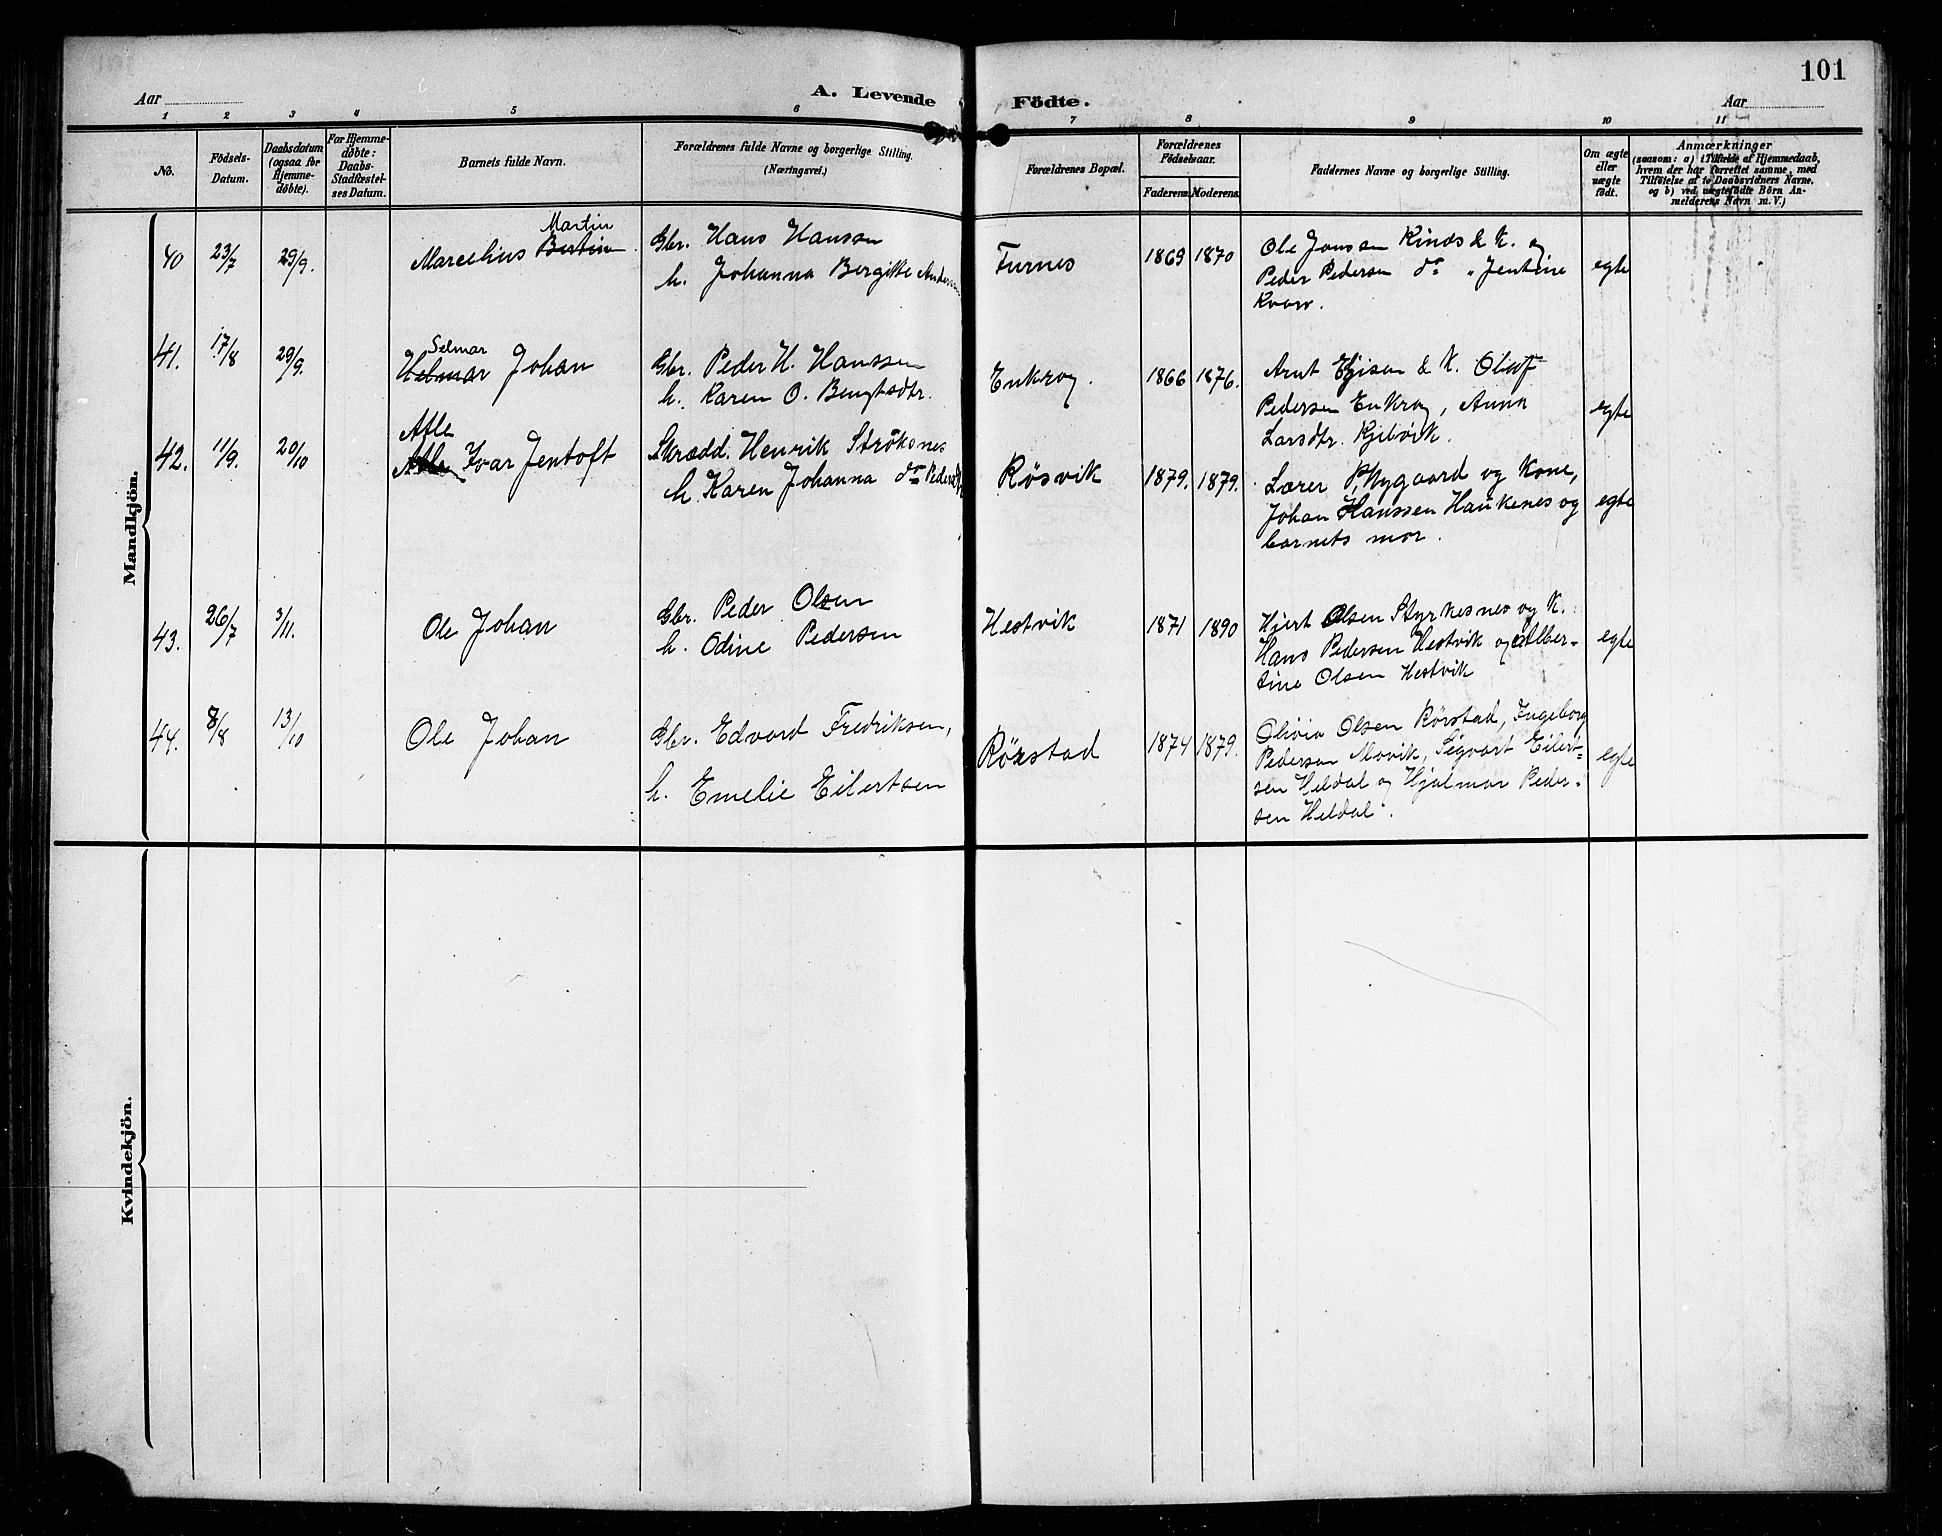 101
Aar
A. Levende Födte.
Aar
1 2 3 4 5 6 7 8 9 10 11
No.
Födsels-
Datum.
Daabsdatum
(ogsaa for
Hjemme-
döbte).
For Hjemme-
döbte:
Daabs-
Stadfæstel-
ses Datum.
Barnets fulde Navn.
Forældrenes fulde Navne og borgerlige Stilling.
(Næringsvei.)
Forældrenes Bopæl.
Forældrenes
Födselsaar.
Faderens. Moderens.
Faddernes Navne og borgerlige Stilling.
Om ægte
eller
uægte
födt.
Anmærkninger
(saasom: a) i Tilfælde af Hjemmedaab,
hvem der har forrettet samme, med
Tilföielse af to Daabsvidners Navne,
og b) ved uægtefödte Börn An-
melderens Navn m. V.)
Mandkjön.
40 23/7 29/9.
Martin
Marcelius Bertin
Gbr. Hans Hanssen
h. Johanna Bergitte Anders
Furnes
1869 1870
Ole Jonssen Rinds & K. og
Peder Pedersen do " Jentine
Kvarv.
egte
41. 17/8 29/9.
Selmar
Helmar Johan
Gbr. Peder H. Hanssen
h. Karen O. Bengtsdtr.
Enkrog.
1866 1876.
Arnt & K. Oluf
Pedersen Enkrog, Anna
Larsdtr. Kjelvik.
egte
42. 11/9. 20/10
Atle
Ivar Jentoft
Skrædd. Henrik Ströksnes
h. Karen Johanna do
Rösvik
1879. 1879.
Lærer Nygaard og Kone,
Johan Hanssen Haukenes og
barnets mor.
egte
43. 26/7 3/11.
Ole Johan
Gbr. Peder Olsen
h. Odine Pedersen
Hestvik
1871 1890
Hjert Olsen Styrkesnes og K.
Hans Pedersen Hestvik og Alber-
tine Olsen Hestvik
egte
44. 8/8 13/10
Ole Johan
Gbr. Edvard Fredriksen,
h. Emelie Eilertsen
Rörstad
1874 1879.
Olivia Olsen Rörstad, Ingeborg
Pedersen Movik, Sigvart Eilert-
sen Heldal og Hjalmar Peder-
sen Heldal.
egte
Kvindekjön.